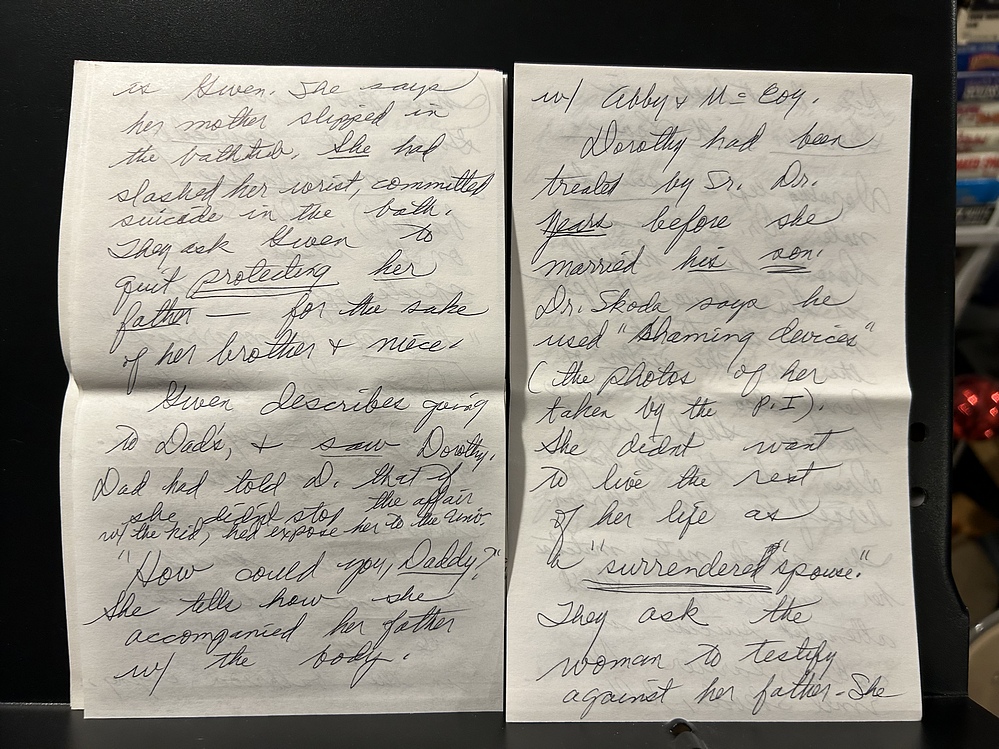 is Gwen. She says
her mother slipped in
the bathtub. She had
slashed her wrist, committed
suicide in the bath.
They ask Gwen to
quit protecting her
father — for the sake
of her brother & niece.
Gwen describes going
to Dad's, & saw Dorothy.
Dad had told D. that if
she didn't stop the affair
w/ the kid, he'd expose her to the Univ.
"How could you, Daddy?"
She tells how she
accompanied her father
w/ the body.
w/ Abby & McCoy.
Dorothy had been
treated by Sr. Dr.
years before she
married his son.
Dr. Skoda says he
used "shaming devices"
(the photos of her
taken by the P.I).
She didnt want
to live the rest
of her life as
a "surrendered spouse."
They ask the
woman to testify
against her father - She